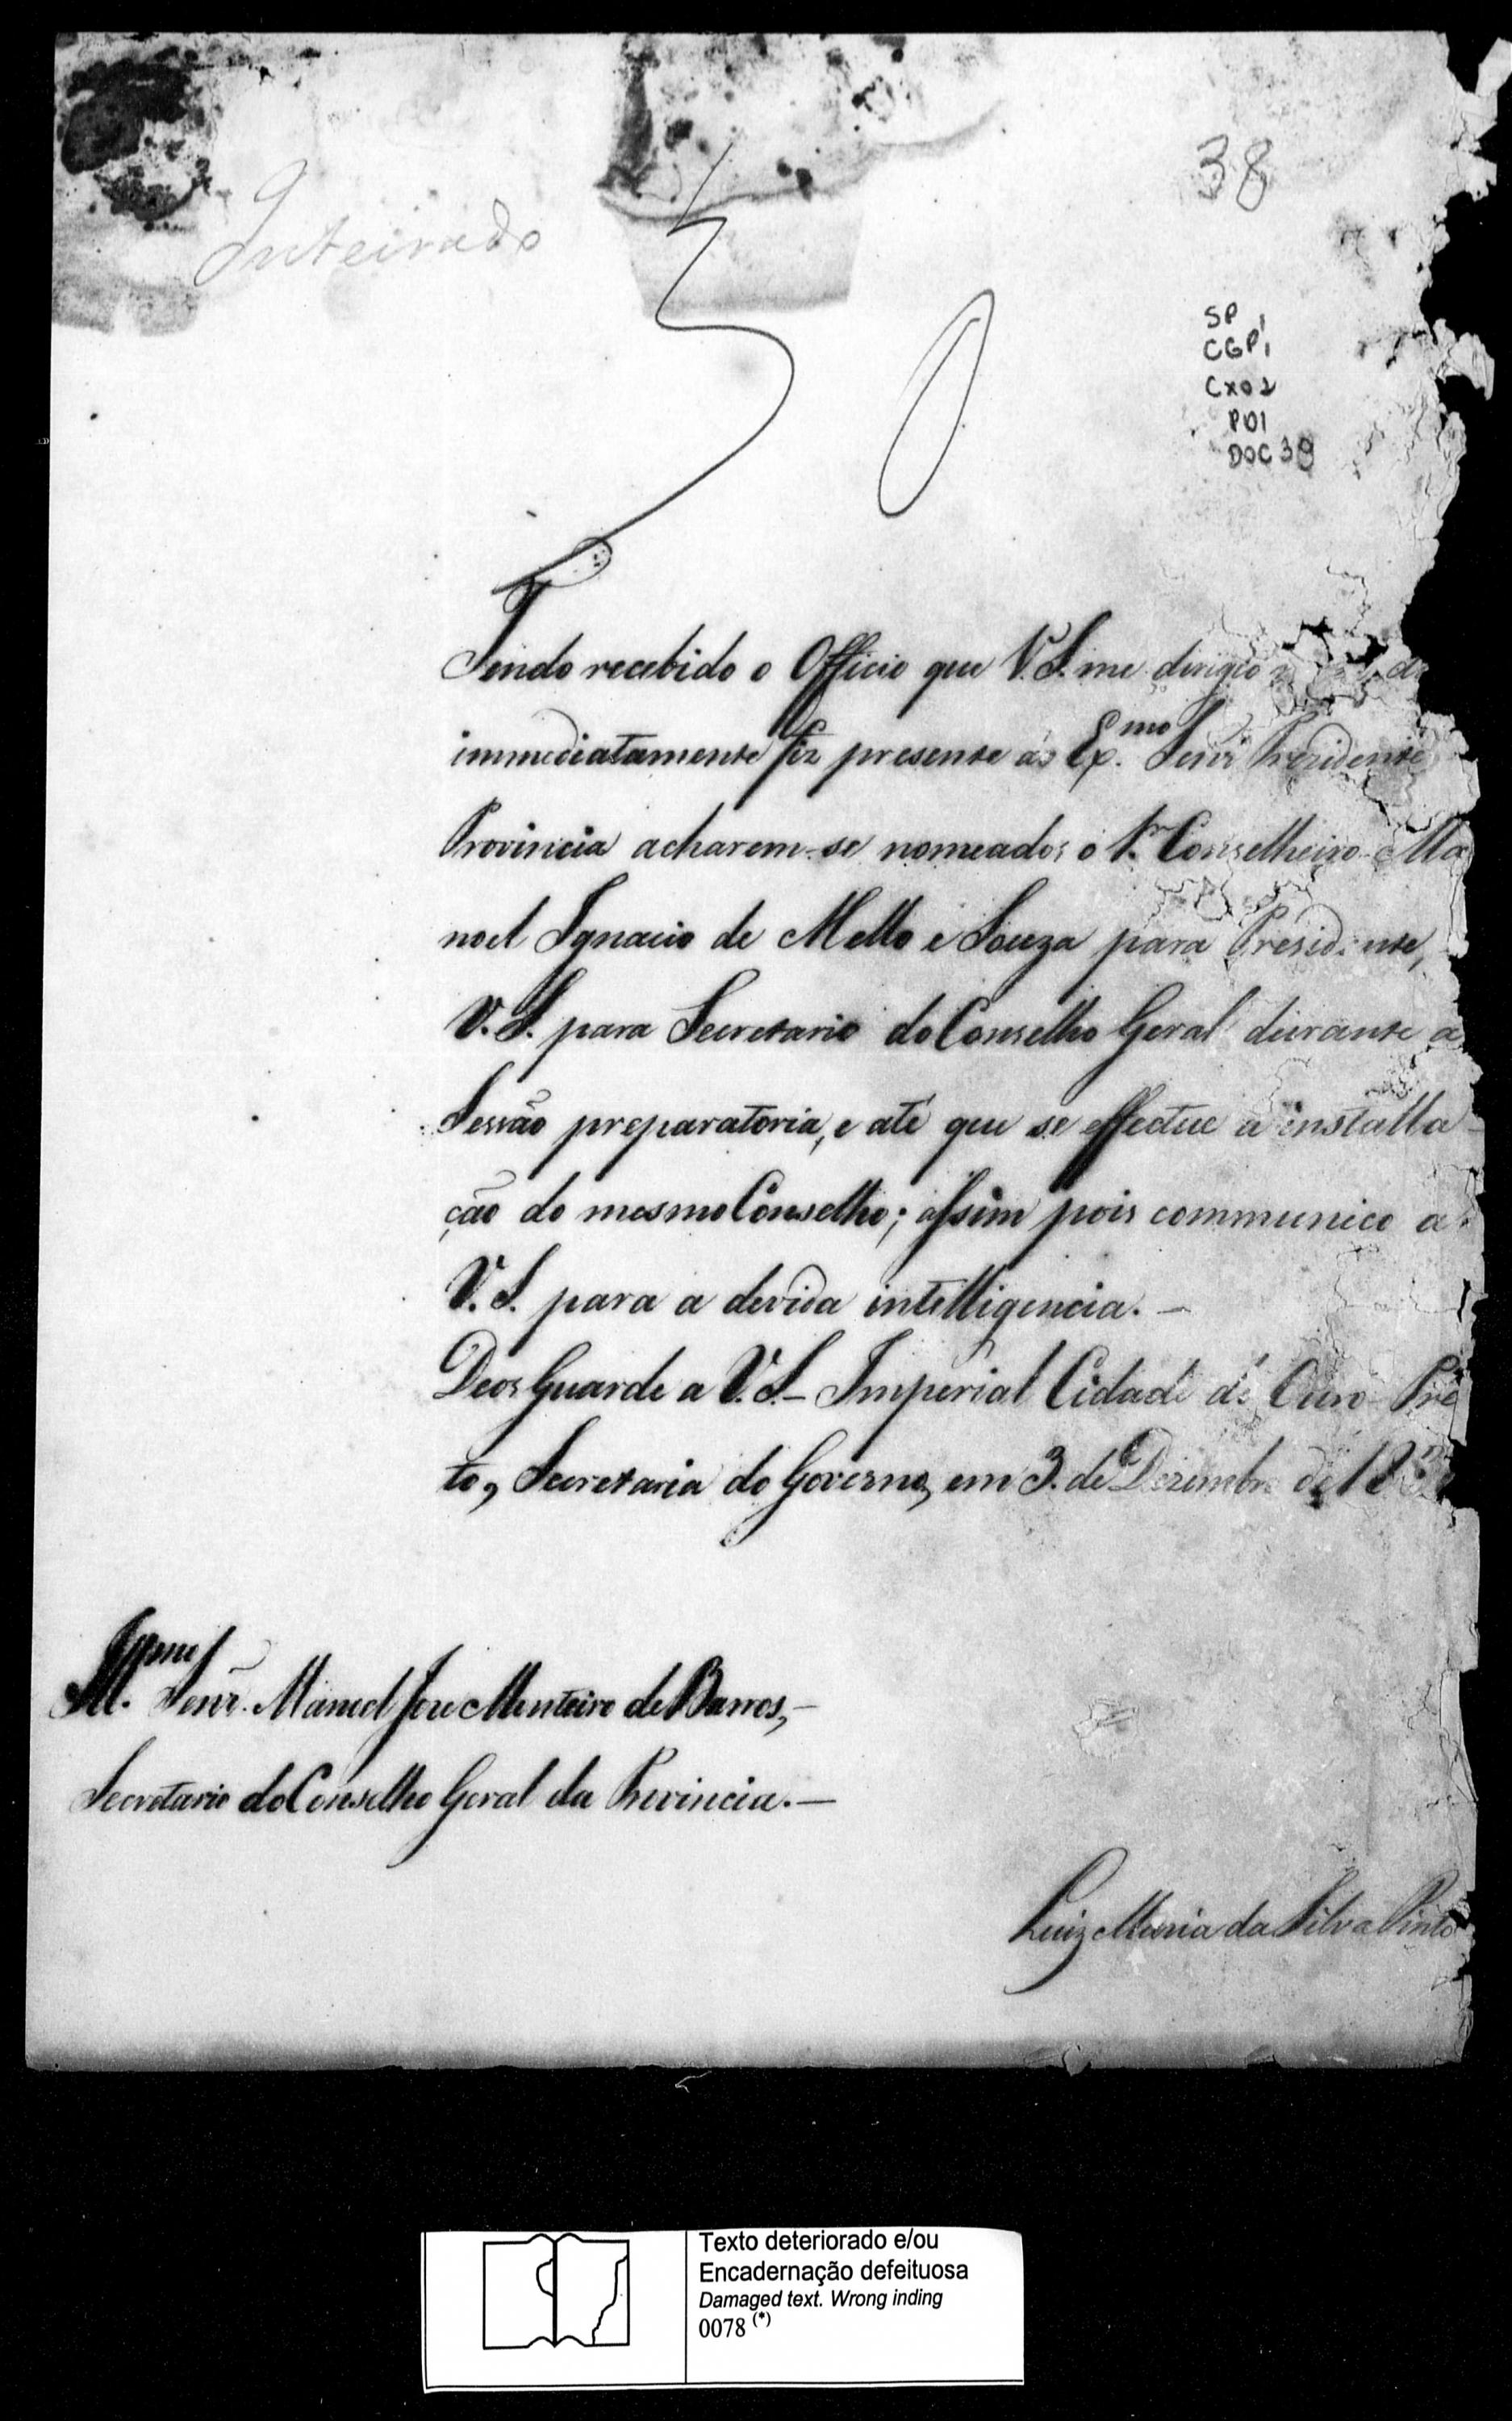 38
Inteirado
SP,
CGP1
CX02
P01
DOC 38
Tendo recebido o Officio que V. S. me dirigio de
immediatamente fiz presente ao Ex.mo Senr Prezidente
Provincia acharem-se nomeados o 1.r Conselheiro Ma
noel Ignacio de Mello e Souza para Presidente,
V. S. para Secretario do Conselho Geral durante a
Sessão preparatoria, e até que se effectue a installa
ção do mesmo Conselho; assim pois communico a
V. S. para a devida intelligencia. —
Deos Guarde a V. S. — Imperial Cidade de Ouro Pre
to, Secretaria do Governo, em 3. de Dezembro de
Ill.mo Senr. Manoel Jose Monteiro de Barros, —
Secretario do Conselho Geral da Provincia. —
Luiz Maria da Silva Pinto
Texto deteriorado e/ou
Encadernação defeituosa
Damaged text. Wrong inding
0078 (*)